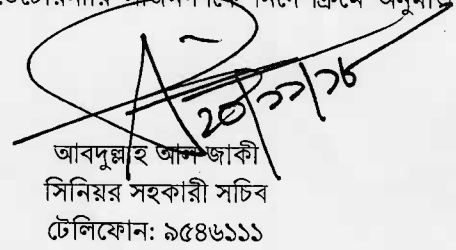 অনুমতি
২০/১১/১৮
আবদুল্লাহ আল জাকী
সিনিয়র সহকারী সচিব
টেলিফোন: ৯৫৪৬১১১